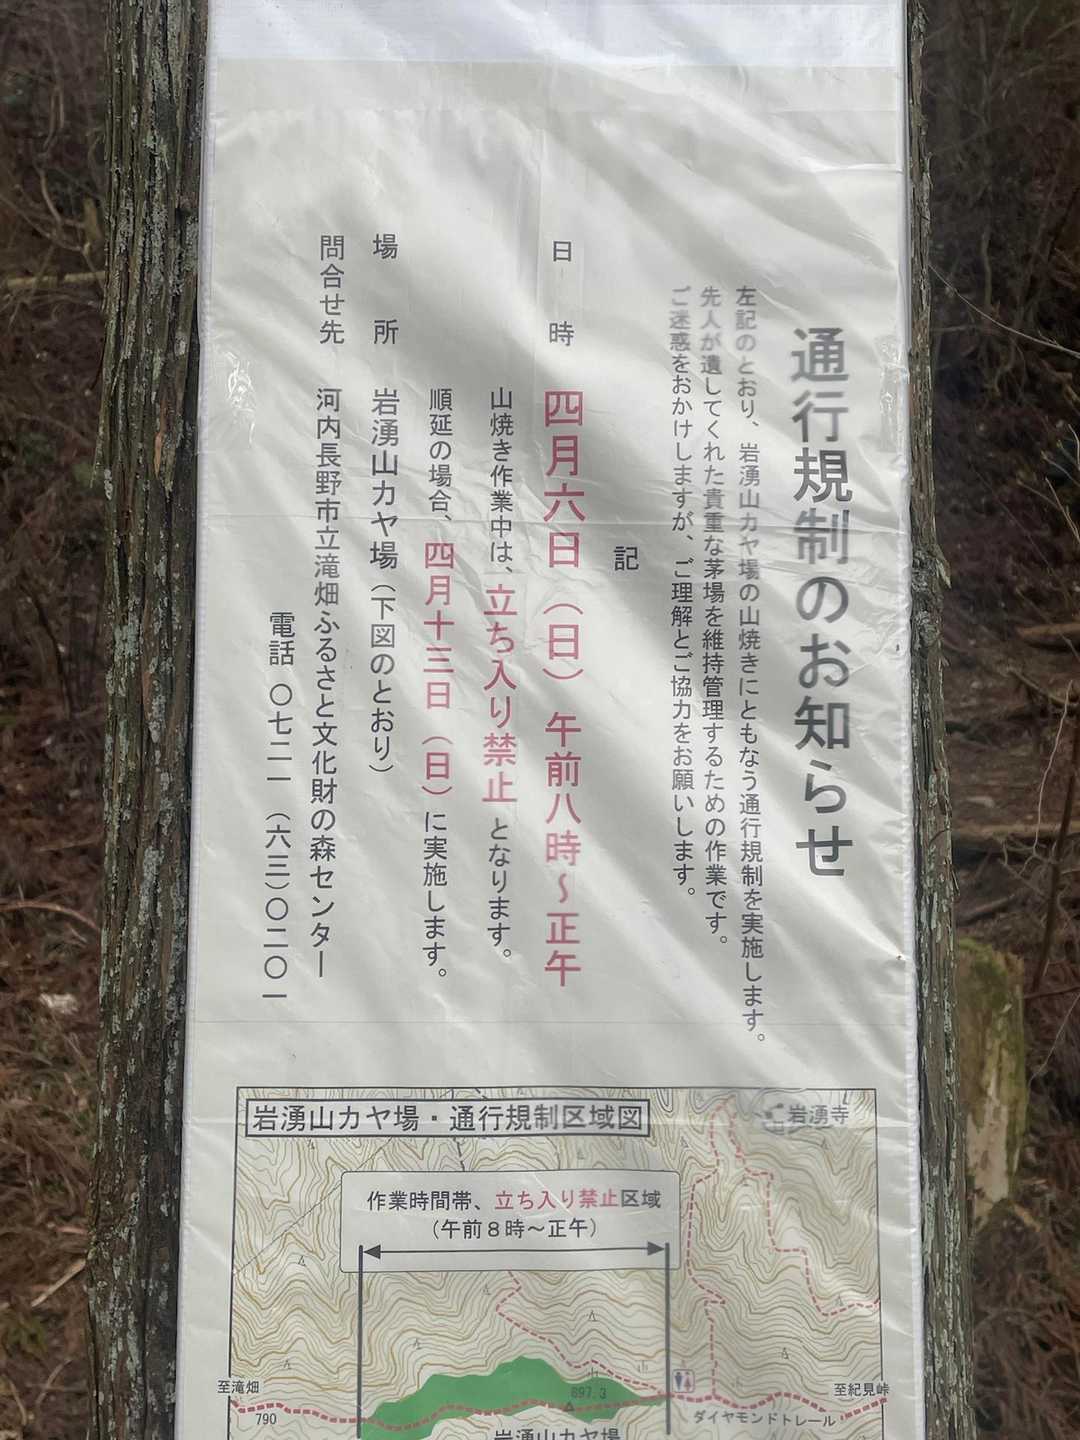 通行規制のお知らせ
左記のとおり、岩湧山カヤ場の山焼きにともなう通行規制を実施します。
先人が遺してくれた貴重な茅場を維持管理するための作業です。
ご迷惑をおかけしますが、ご理解とご協力をお願いします。
記
日時 四月六日（日）午前八時～正午
山焼き作業中は、立ち入り禁止となります。
順延の場合、四月十三日（日）に実施します。
場所 岩湧山カヤ場（下図のとおり）
問合せ先 河内長野市立滝畑ふるさと文化財の森センター
電話 〇七二一（六三）〇二〇一
岩湧山カヤ場・通行規制区域図
岩湧寺
作業時間帯、立ち入り禁止区域
（午前８時～正午）
至滝畑
790
897.3
至紀見峠
ダイヤモンドトレール
岩湧山カヤ場